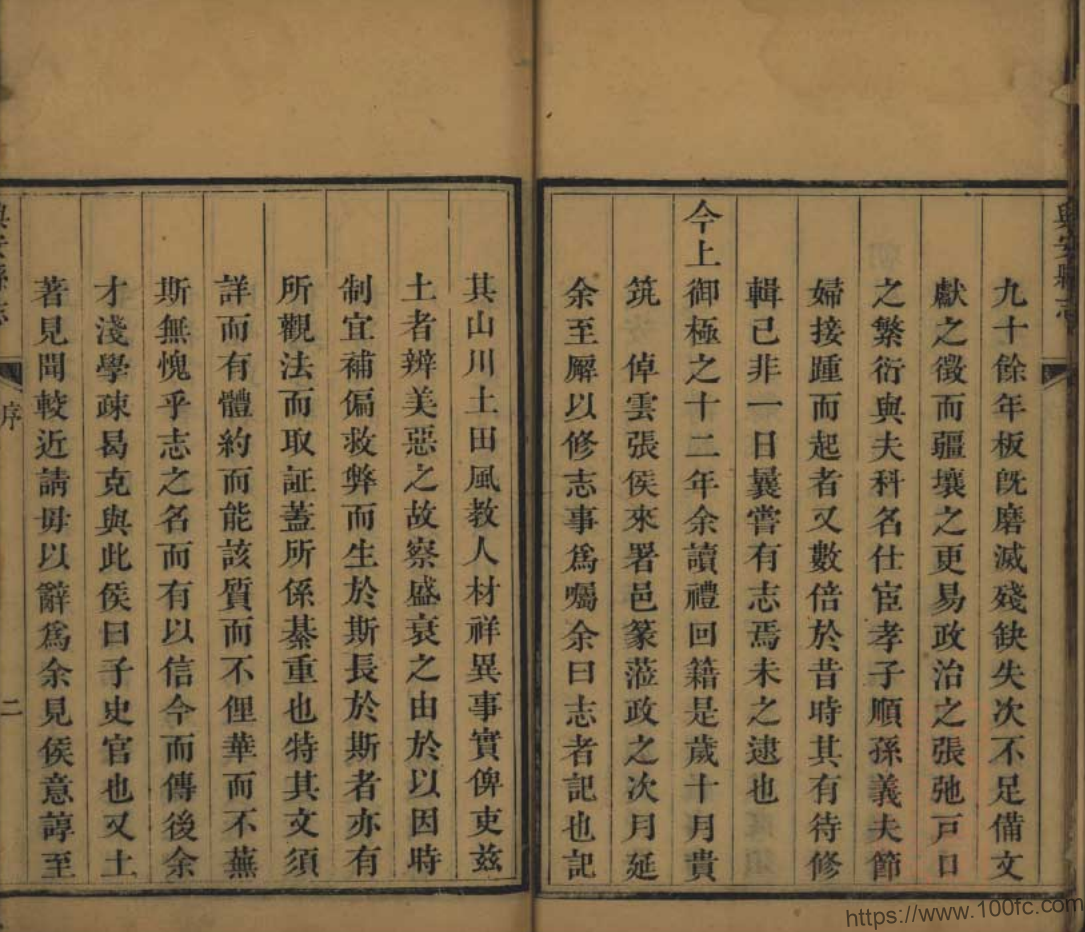 興安縣志
九十餘年板旣磨滅殘缺失次不足備文
獻之徵而疆壤之更易政治之張弛戸口
之繁衍與夫科名仕宦孝子順孫義夫節
婦接踵而起者又數倍於昔時其有待修
輯已非一日曩嘗有志焉未之逮也
今上御極之十二年余讀禮回籍是歲十月貴
筑　倬雲張侯來署邑篆蒞政之次月延
余至廨以修志事爲囑余曰志者記也記
其山川土田風教人材祥異事實俾吏兹
土者辨美惡之故察盛衰之由於以因時
制宜補偏救弊而生於斯長於斯者亦有
所觀法而取証蓋所係綦重也特其文須
詳而有體約而能該質而不俚華而不蕪
斯無愧乎志之名而有以信今而傳後余
才淺學疎曷克與此侯曰子史官也又土
著見聞較近請毋以辭爲余見侯意諄至
興安縣志
序
二
https://www.100fc.com